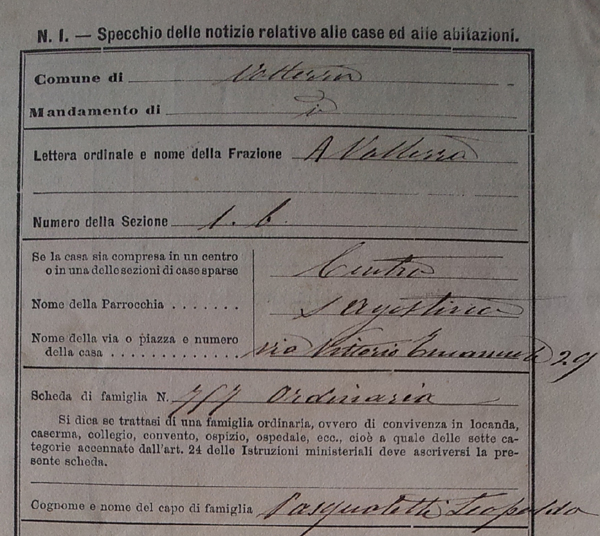 N. I. — Specchio delle notizie relative alle case ed alle abitazioni.
Comune di Volterra
Mandamento di
Lettera ordinale e nome della Frazione A Volterra
Numero della Sezione 1. b.
Se la casa sia compresa in un centro
o in una delle sezioni di case sparse Centro
Nome della Parrocchia . . . . . . . S Agostino
Nome della via o piazza e numero
della casa . . . . . . . . . . . . via Vittorio Emanuele 29
Scheda di famiglia N. 757 Ordinaria
Si dica se trattasi di una famiglia ordinaria, ovvero di convivenza in locanda,
caserma, collegio, convento, ospizio, ospedale, ecc., cioè a quale delle sette ca-
tegorie accennate dall'art. 24 delle Istruzioni ministeriali deve ascriversi la pre-
sente scheda.
Cognome e nome del capo di famiglia Pasqualetti Leopoldo